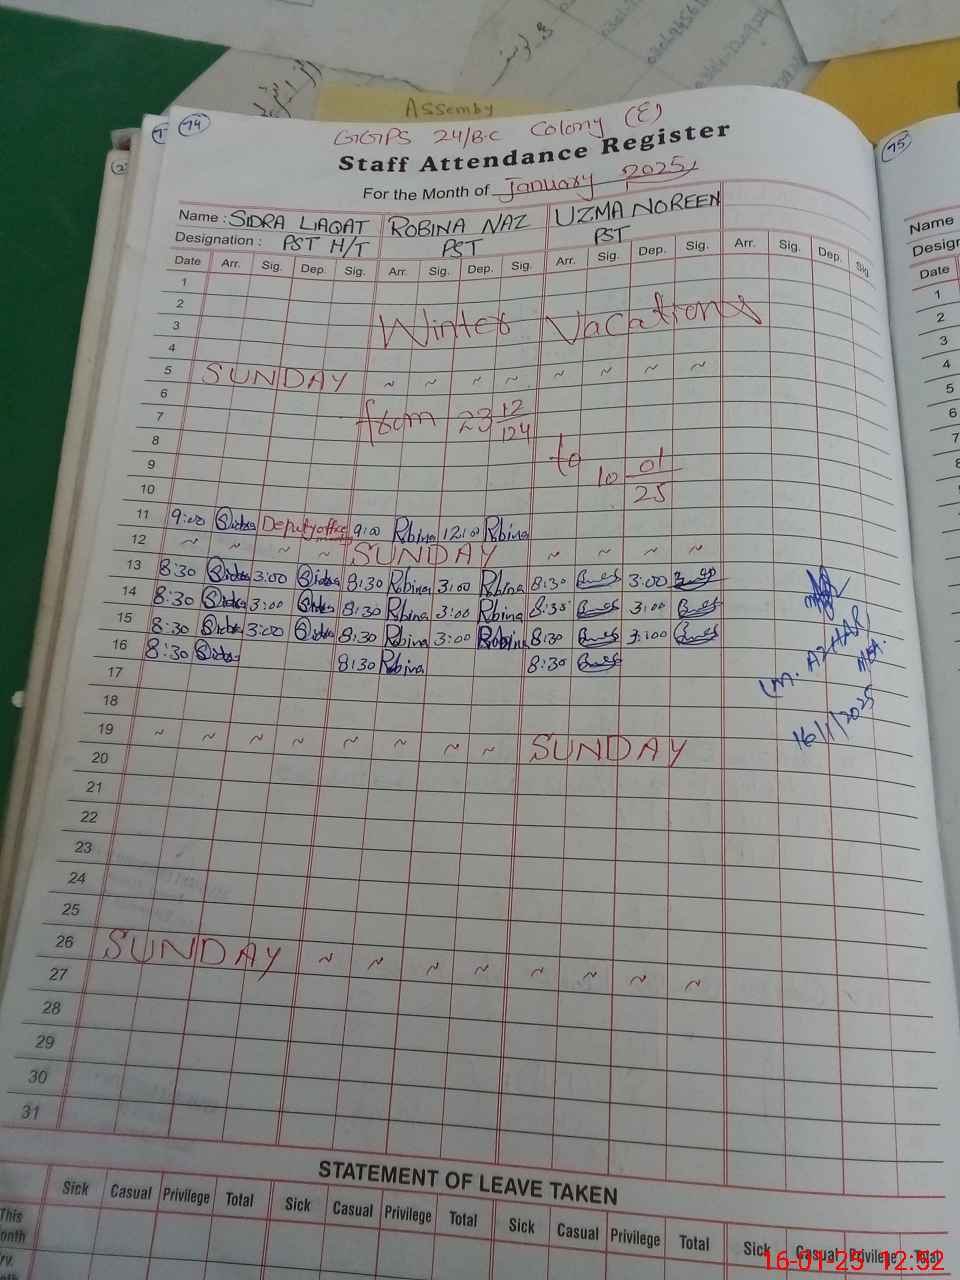 Assemby
74
75
GGPS 24/BC Colony (E)
Staff Attendance Register
For the Month of January 2025
Name : SIDRA LIAQAT ROBINA NAZ UZMA NOREEN
Designation : PST H/T PST PST
Date Arr. Sig. Dep. Sig. Arr. Sig. Dep. Sig. Arr. Sig. Dep. Sig. Arr. Sig. Dep. Sig
1
2
3 Winter Vacations
4
5 SUNDAY ~ ~ ~ ~ ~ ~ ~ ~
6
7 from 23 12/124
8 to
9 10 01/25
10
11 9:00 Sidra Deputy office 9:00 Robina 12:00 Robina
12 ~ ~ ~ ~ SUNDAY ~ ~ ~ ~
13 8:30 Sidra 3:00 Sidra 8:30 Robina 3:00 Robina 8:30 3:00
14 8:30 Sidra 3:00 Sidra 8:30 Robina 3:00 Robina 8:30 3:00
15 8:30 Sidra 3:00 Sidra 8:30 Robina 3:00 Robina 8:30 3:00
16 8:30 Sidra 8:30 Robina 8:30
17
18
19 ~ ~ ~ ~ ~ ~ ~ ~ SUNDAY
20
21
22
23
24
25
26 SUNDAY ~ ~ ~ ~ ~ ~ ~ ~
27
28
29
30
31
M. AZHAR
MEA.
16/1/2025
STATEMENT OF LEAVE TAKEN
Sick Casual Privilege Total Sick Casual Privilege Total Sick Casual Privilege Total Sick Casual Privilege Total
This
Month
Name
Date
1
2
3
4
5
6
7
8
16-01-25 12:52